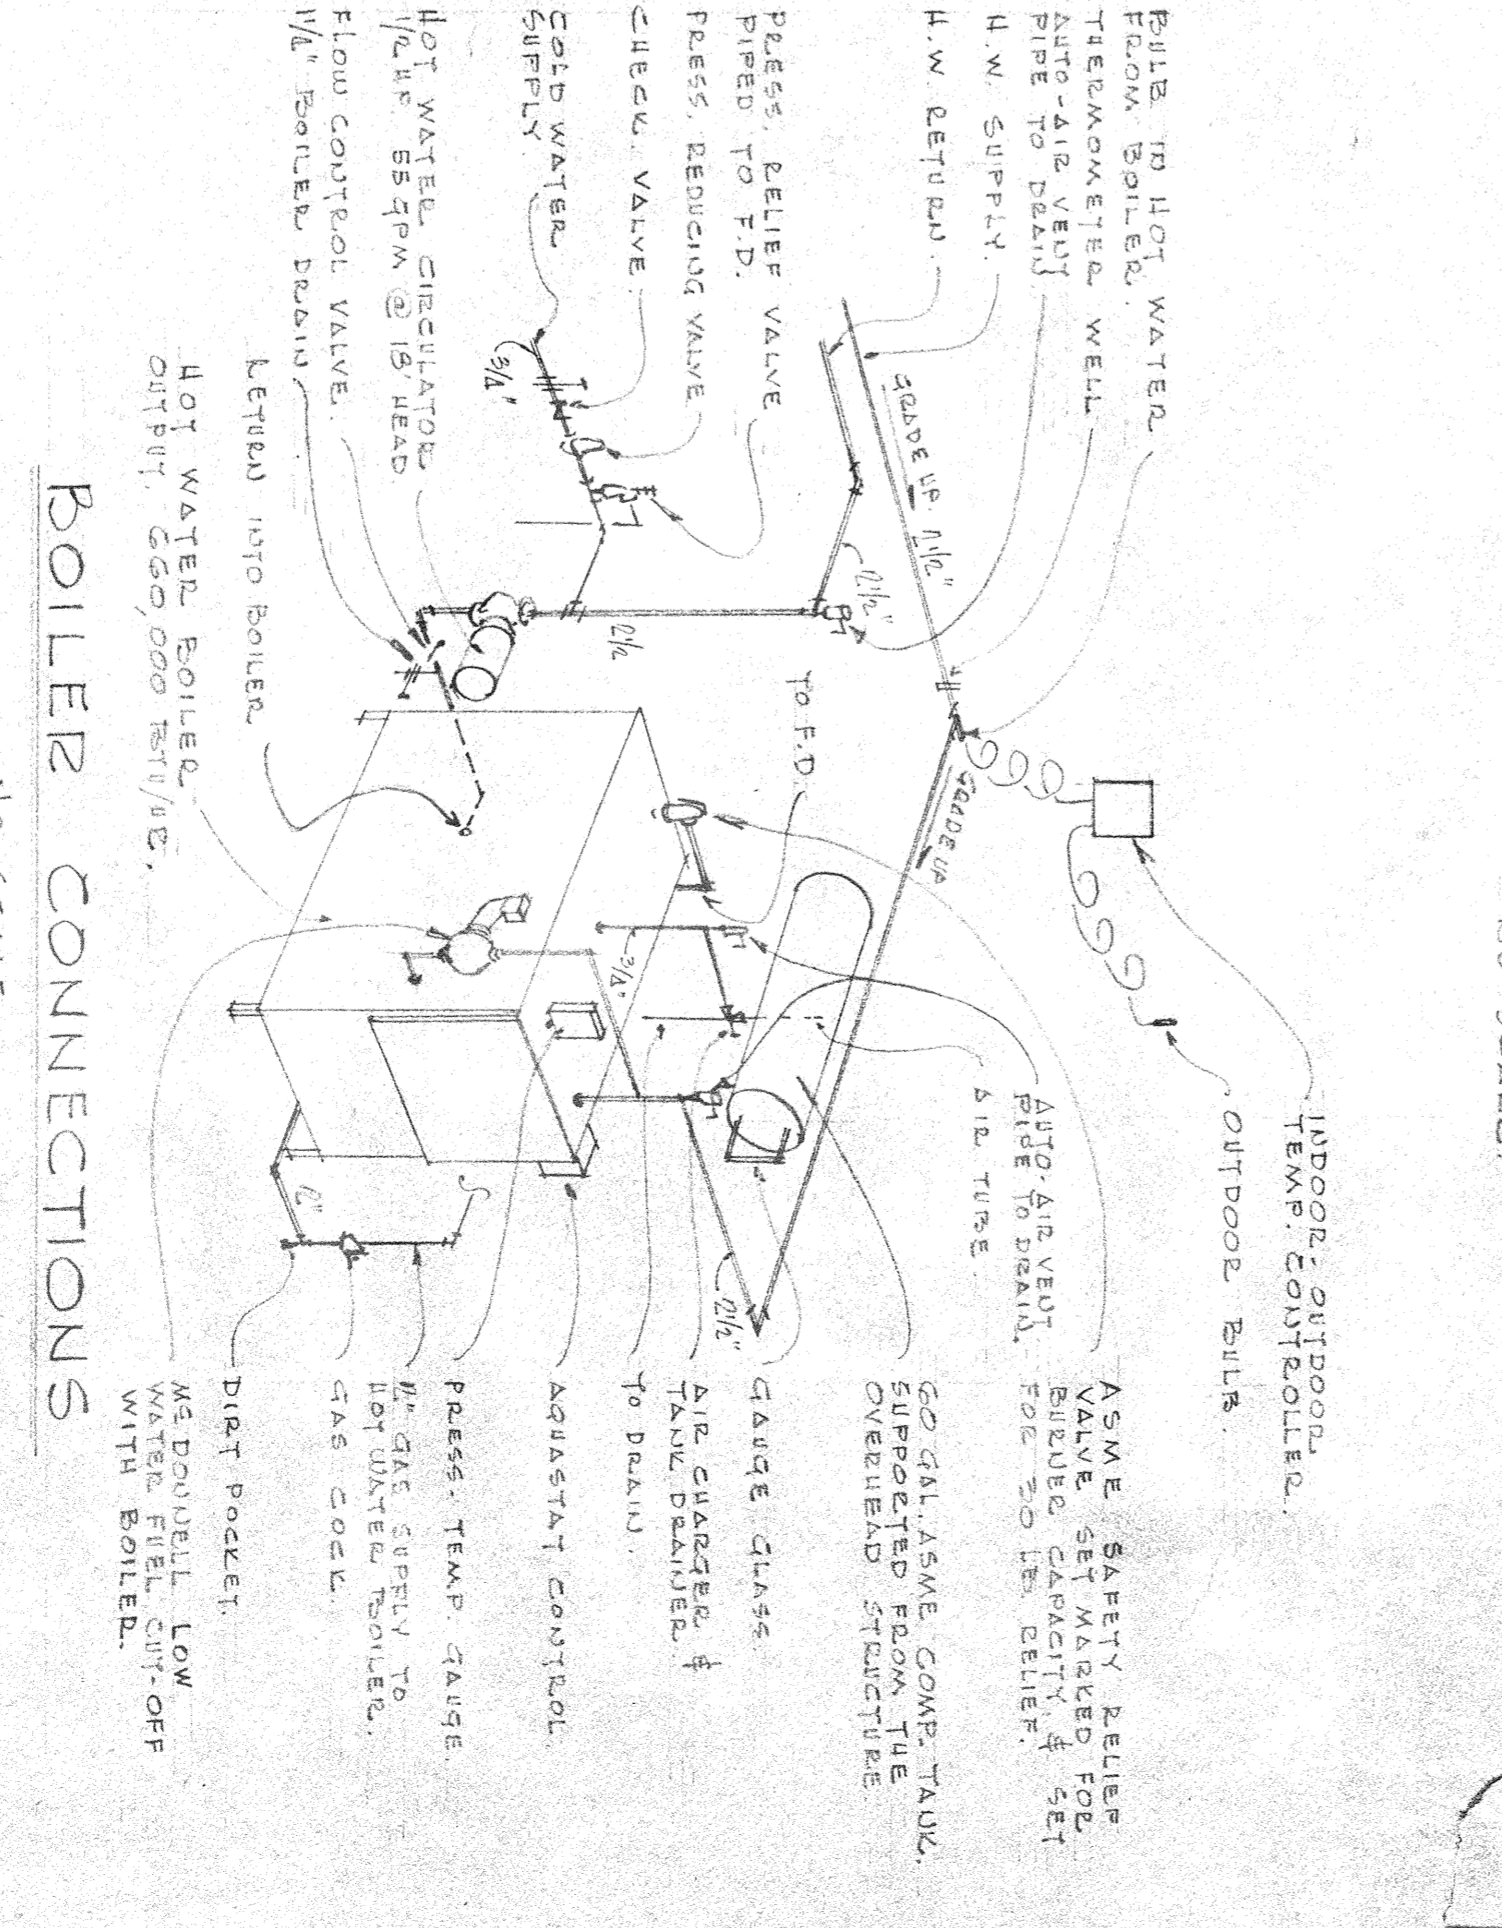 BULB IN HOT WATER
FROM BOILER.
THERMOMETER WELL
AUTO-AIR VENT
PIPE TO DRAIN
H.W. SUPPLY.
H.W. RETURN.
PRESS. RELIEF VALVE
PIPED TO F.D.
PRESS. REDUCING VALVE
CHECK VALVE.
COLD WATER
SUPPLY.
HOT WATER CIRCULATOR
1/2 HP 55 GPM @ 18' HEAD
FLOW CONTROL VALVE.
1 1/4" BOILER DRAIN
RETURN INTO BOILER
HOT WATER BOILER
OUTPUT, 660,000 BTU/HR.
GRADE UP. 2 1/2"
2 1/2"
3/4"
2 1/2
TO F.D.
GRADE UP
3/4"
2"
2 1/2"
INDOOR-OUTDOOR
TEMP. CONTROLLER.
OUTDOOR BULB.
ASME SAFETY RELIEF
VALVE SET MARKED FOR
BURNER CAPACITY & SET
FOR 30 LB. RELIEF.
AUTO-AIR VENT
PIPE TO DRAIN.
AIR TUBE.
60 GAL. ASME COMP. TANK.
SUPPORTED FROM THE
OVERHEAD STRUCTURE
GAUGE GLASS.
AIR CHARGER &
TANK DRAINER.
TO DRAIN.
AQUASTAT CONTROL.
PRESS.-TEMP. GAUGE.
2" GAS SUPPLY TO
HOT WATER BOILER.
GAS COCK.
DIRT POCKET.
McDONNELL LOW
WATER FUEL CUT-OFF
WITH BOILER.
BOILER CONNECTIONS